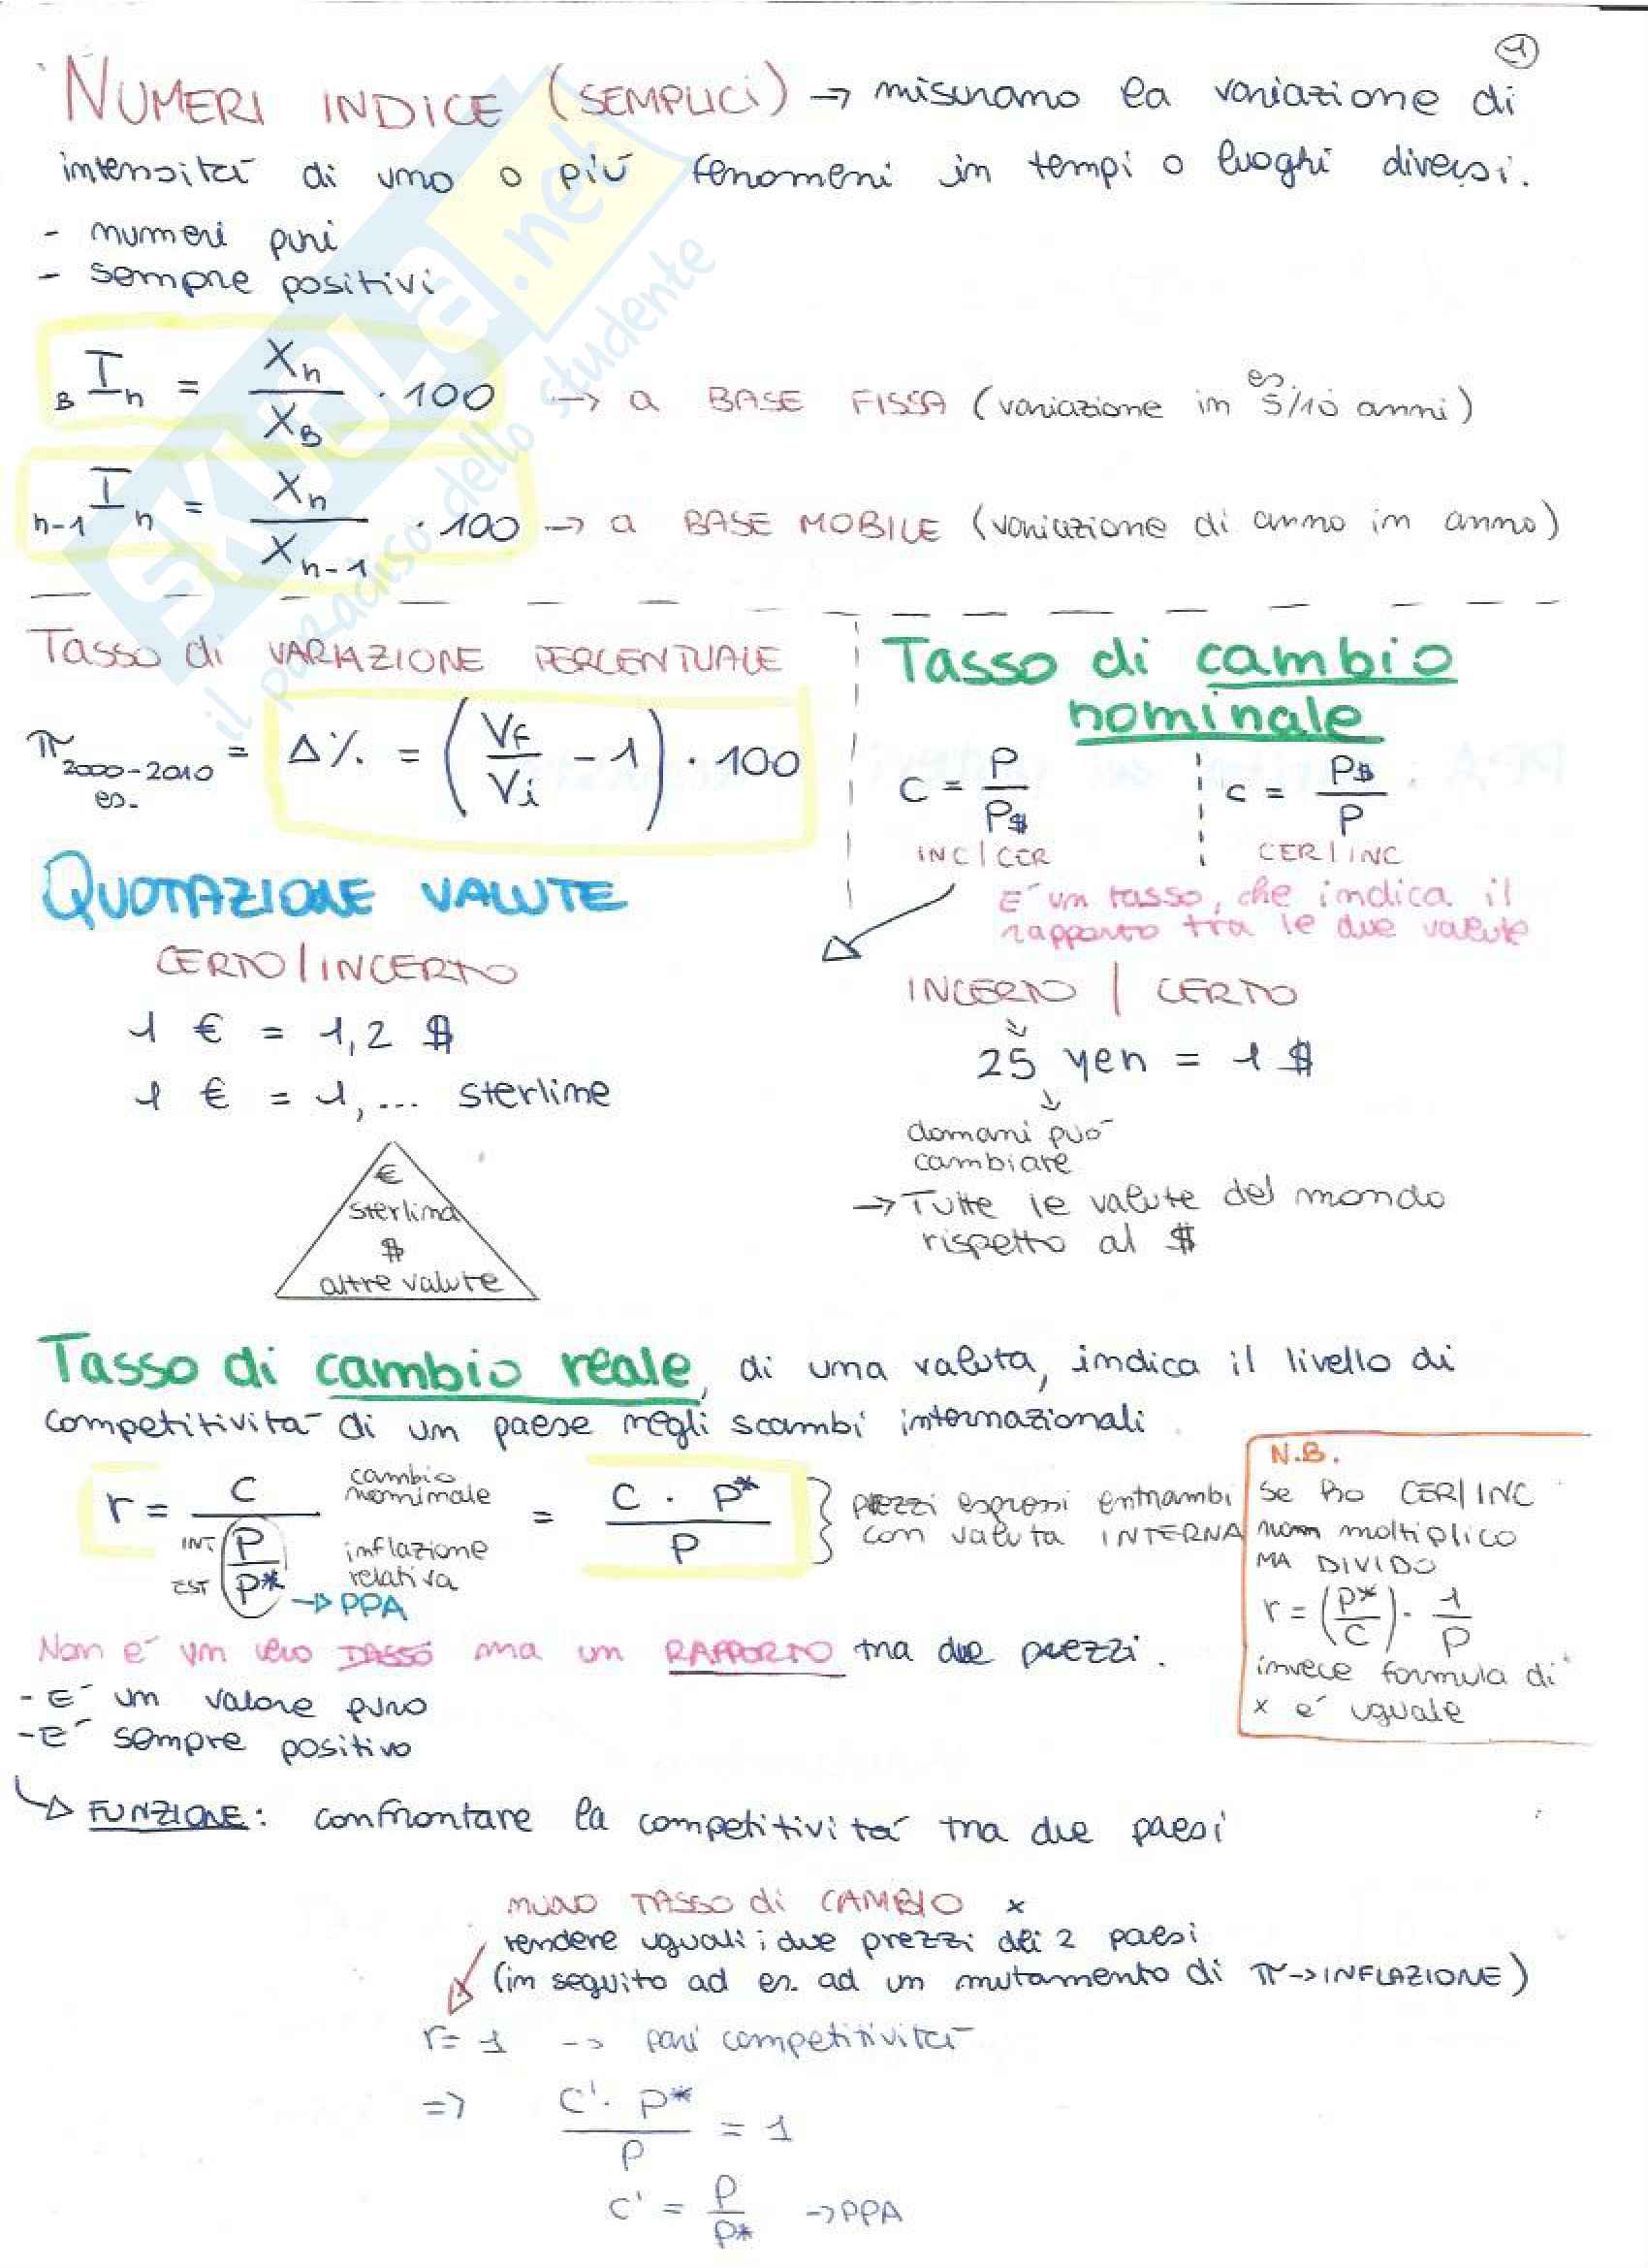 1
NUMERI INDICE (SEMPLICI) → misurano la variazione di
intensità di uno o più fenomeni in tempi o luoghi diversi.
- numeri puri
- sempre positivi
B I n = Xn / XB · 100 → a BASE FISSA (variazione in es 5/10 anni)
n-1 I n = Xn / Xn-1 · 100 → a BASE MOBILE (variazione di anno in anno)
Tasso di VARIAZIONE PERCENTUALE
π 2000-2010 es. = Δ% = (Vf / Vi - 1) · 100
Tasso di cambio
nominale
c = P / P$
INC|CER
c = P$ / P
CER|INC
E' un tasso, che indica il
rapporto tra le due valute
QUOTAZIONE VALUTE
CERTO|INCERTO
1 € = 1,2 $
1 € = 1,... sterline
€
sterlina
$
altre valute
INCERTO | CERTO
25 yen = 1 $
domani può
cambiare
→ Tutte le valute del mondo
rispetto al $
Tasso di cambio reale, di una valuta, indica il livello di
competitività di un paese negli scambi internazionali.
r = C / (P / P*) = C · P* / P
cambio
nominale
INT
EST
inflazione
relativa
→ PPA
prezzi espressi entrambi
con valuta INTERNA
N.B.
Se ho CER|INC
non moltiplico
MA DIVIDO
r = (P* / C) · 1 / P
invece formula di
x e' uguale
Non e' un vero TASSO ma un RAPPORTO tra due prezzi.
- E' un valore puro
- E' sempre positivo
FUNZIONE: confrontare la competitività tra due paesi
MUTO TASSO di CAMBIO x
rendere uguali i due prezzi dei 2 paesi
(in seguito ad es. ad un mutamento di π → INFLAZIONE)
r = 1 → pari competitività
=> C' · P* / P = 1
C' = P / P* → PPA
SKUOLA.net
il paradiso dello studente